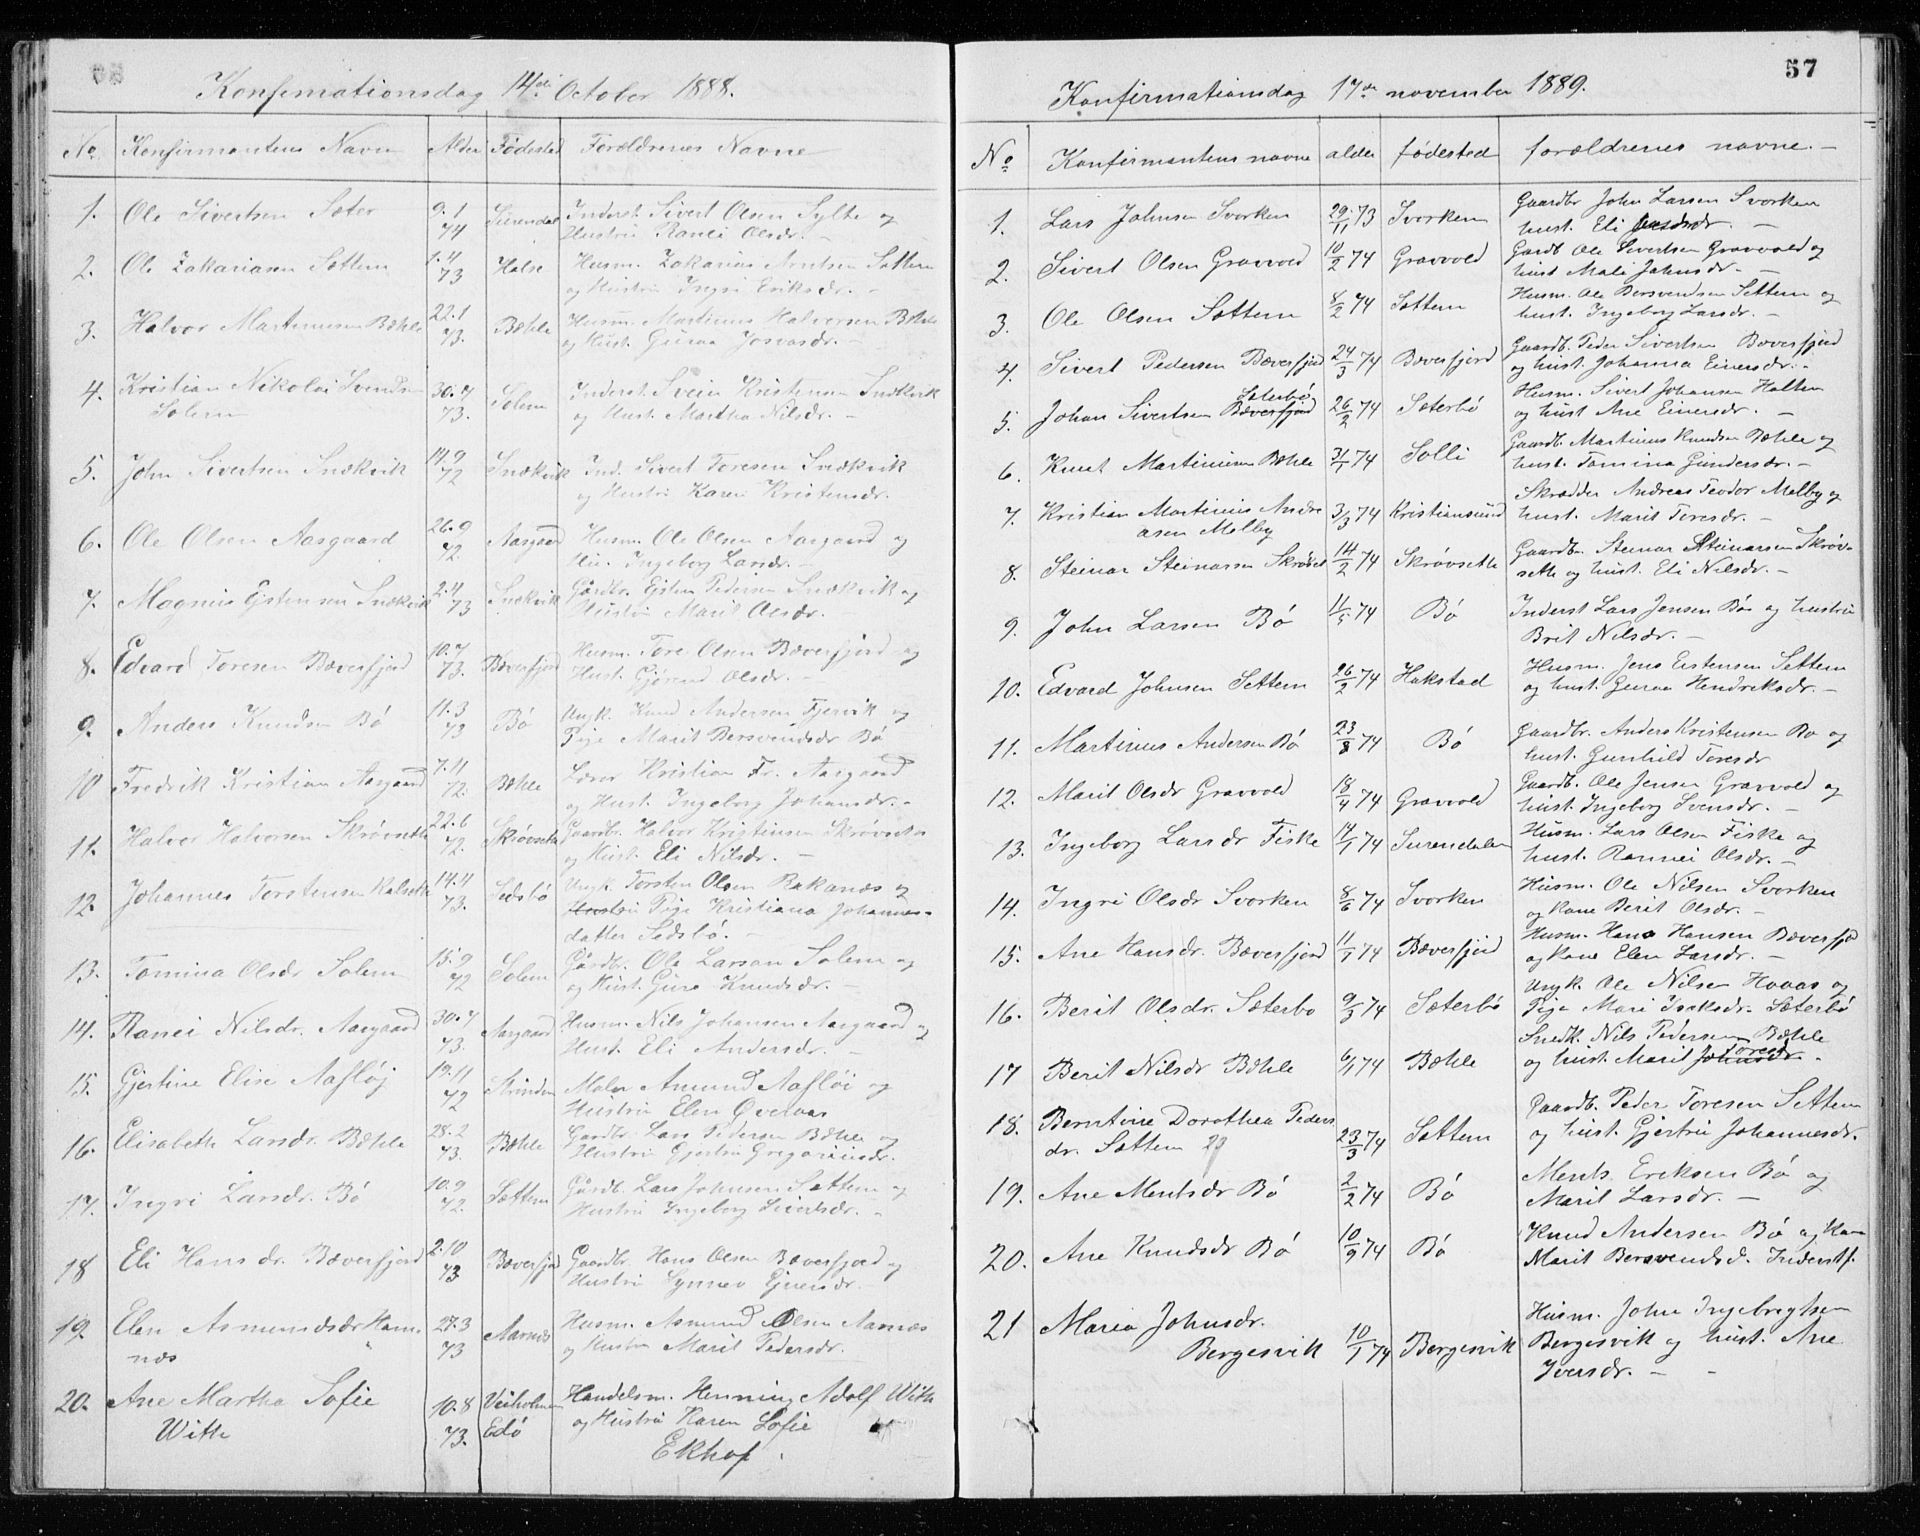 Konfirmationsdag 14de October 1888.
No. Konfirmantens Navn Alder Fødested Forældrenes Navne
1. Ole Sivertsen Sæter 9.1 74 Surendal Inderst Sivert Olsen Sylte og
Hustru Ranei Olsdr. –
2. Ole Zakariasen Settem 1.4 73 Halse Husm. Zakarias Arntsen Settem
og Hustru Ingri Eriksdr. –
3. Halvor Martinusen Bæhle 22.1 73. Bæhle Husm. Martinus Halvorsen Bæhle
og Hust. Guraa Josvasdr. –
4. Kristian Nikolai Svendsen
Solem 30.7 73. Solem Inderst Svein Kristensen Snekvik
og Hust. Martha Nilsdr. –
5. John Sivertsen Snækvik 14.9 72 Snækvik Ind. Sivert Toresen Snekvik
og Hustru Karen Kristensdr. –
6. Ole Olsen Aasgaard 26.9 72. Aasgaard Husm. Ole Olsen Aasgaard og
Hu. Ingeborg Larsdr. –
7. Magnus Ejstensen Snekvik 2.4 73 Snekvik Gårdbr. Ejsten Pedersen Snækvik og
Hustru Marit Olsdr.
8. Edvard Toresen Bæverfjord 10.7 73. Bæverfjord Husm. Tore Olsen Bæverfjord og
Hust. Gjørud Olsdr. –
9. Anders Knudsen Bö 11.3 73 Bö Ungk. Knud Andersen Fjervik og
Pige Marit Bersvendsdr Bö
10 Fredrik Kristian Aasgaard 7.11 72. Bæhle Lærer Kristian Fr. Aasgaard
og Hust. Ingeborg Johansdr. –
11. Halvor Halvorsen Skrøvseth 22.6 72. Skrøvseth Gaardbr. Halvor Kristensen Skrøvseth
og Hust. Eli Nilsdr. –
12. Johannes Torstensen Kalseth 14.4 73. Sedsbö Ungk. Torsten Olsen Bakanæs og
Hustru Pige Kristiana Johannes-
datter Sedsbö. –
13. Tomina Olsdr Solem 15.9 72 Solem Gårdbr. Ole Larsen Solem og
og Hust. Guro Knudsdr. –
14. Ranei Nilsdr. Aasgaard 30.7 73. Aasgaard Husm. Nils Johansen Aasgaard og
Hust. Eli Andersdr. –
15. Gjertine Elise Aafløj 19.11 72 Strinden Maler Amund Aafløi og
Hustru Elen Øveraas
16. Elisabeth Larsdr. Bæhle 28.2 73. Bæhle Gardbr. Lars Pedersen Bæhle og
Hustru Gjertru Gregoriusdr.
17. Ingri Larsdr. Bö 10.9 72. Settem Gårdb. Lars Johnsen Sættem og
Hustru Ingeborg Sivertsdr. –
18 Eli Hansdr. Bæverfjord 2.10 73 Bæverfjord Gaardbr. Hans Olsen Bæverfjord og
Hustru Synnev Ejnersdr. –
19. Elen Asmundsdr Ham-
næs 27.3 73 Aarnæs Husm. Asmund Olsen Aarnæs
og Hustru Marit Pedersdr.
20. Ane Martha Sofie
Witte 10.8 73. Veiholmen
Edö Handelsm. Henning Adolf Witte
og Hustru Karen Sofie
Ekhof.
57
Konfirmationsdag 17de november 1889.
No Konfirmantens navne alder fødested forældrenes navne. –
1. Lars Johnsen Svorken 29/11 73 Svorken Gaardbr John Larsen Svorken
hust. Eli –
2. Sivert Olsen Gravvold 10/2 74 Gravvold Gardb Ole Sivertsen Gravvold og
hust Mali Johnsdr. –
3. Ole Olsen Settem 8/2 74 Settem Husm. Ole Bersvendsen Settem og
hust. Ingeborg Larsdr. –
4. Sivert Pedersen Bæverfjord 24/3 74 Bæverfjord Gaardb. Peder Sivertsen Bæverfjord
og hust. Johanna Einersdr. –
5. Johan Sivertsen Bæverfjord Sæterbö 26/2 74 Sæterbö Husm. Sivert Johansen Halten
og hust Ane Einersdr. –
6. Knut Martinusen Bæhle 31/1 74 Solli Gaardb. Martinus Knudsen Bæhle og
hust. Tomina Gundersdr. –
7. Kristian Martinius Andre
asen Melby 3/3 74 Kristiansund Skrædder Andreas Teodor Melby og
hust. Marit Toresdr. –
8. Steinar Steinarsen Skrøvset 14/2 74 Skrøvseth Gaardbr. Steinar Steinarsen Skrøv-
seth og hust. Eli Nilsdr. –
9. John Larsen Bö 11/5 74 Bö Inderst Lars Jensen Bö og hustru
Brit Nilsdr. –
10. Edvard Johnsen Settem 26/2 74 Hakstad Husm. Jens Eistensen Settem
og hust. Guraa Hendriksdr. –
11. Martinus Andersen Bö 23/8 74 Bö Gaardbr. Anders Kristensen Bö og
hust. Gunhild Toresdr
12. Marit Olsdr Gravvold 18/4 74 Gravvold Gaardb. Ole Jensen Gravvold og
hust. Ingeborg Svensdr. –
13. Ingeborg Larsdr Fiske 14/1 74 Surendalen Husm. Lars Olsen Fiske og
hust. Rannei Olsdr. –
14. Ingri Olsdr Svorken 8/6 74 Svorken Husm. Ole Nilsen Svorken
og kone Berit Olsdr. –
15. Ane Hansdr. Bæverfjord 11/1 74 Bæverfjord Husm. Hans Hansen Bæverfjd
og kone Elen Larsdr. –
16. Berit Olsdr. Sæterbo 9/3 74 Sæterbö Ungk. Ole Nilsen Hovas og
Pige Mari Isaksdr. Sæterbö
17 Berit Nilsdr Bæhle 6/1 74 Bæhle Snedk. Nils Pedersen Bæhle
og hust. Marit Johnsdr. Toresdr
18. Berntine Dorothea Peders
dr. Settem 23 23/3 74 Settem Gaardb. Peder Toresen Settem
og hust. Gjertru Johannesdr.
19. Ane Mentsdr Bö 2/2 74 Bö Ments Eriksen Bö og
Marit Larsdr. –
20. Ane Knudsdr Bö 10/9 74 Bö Knud Andersen Bö og kone
Marit Bersvendsd. Inderstf.
21 Maria Johnsdr.
Bergesvik 10/1 74 Bergesvik Husm. John Ingebregtsen
Bergesvik og hust. Ane
Iversdr. – –